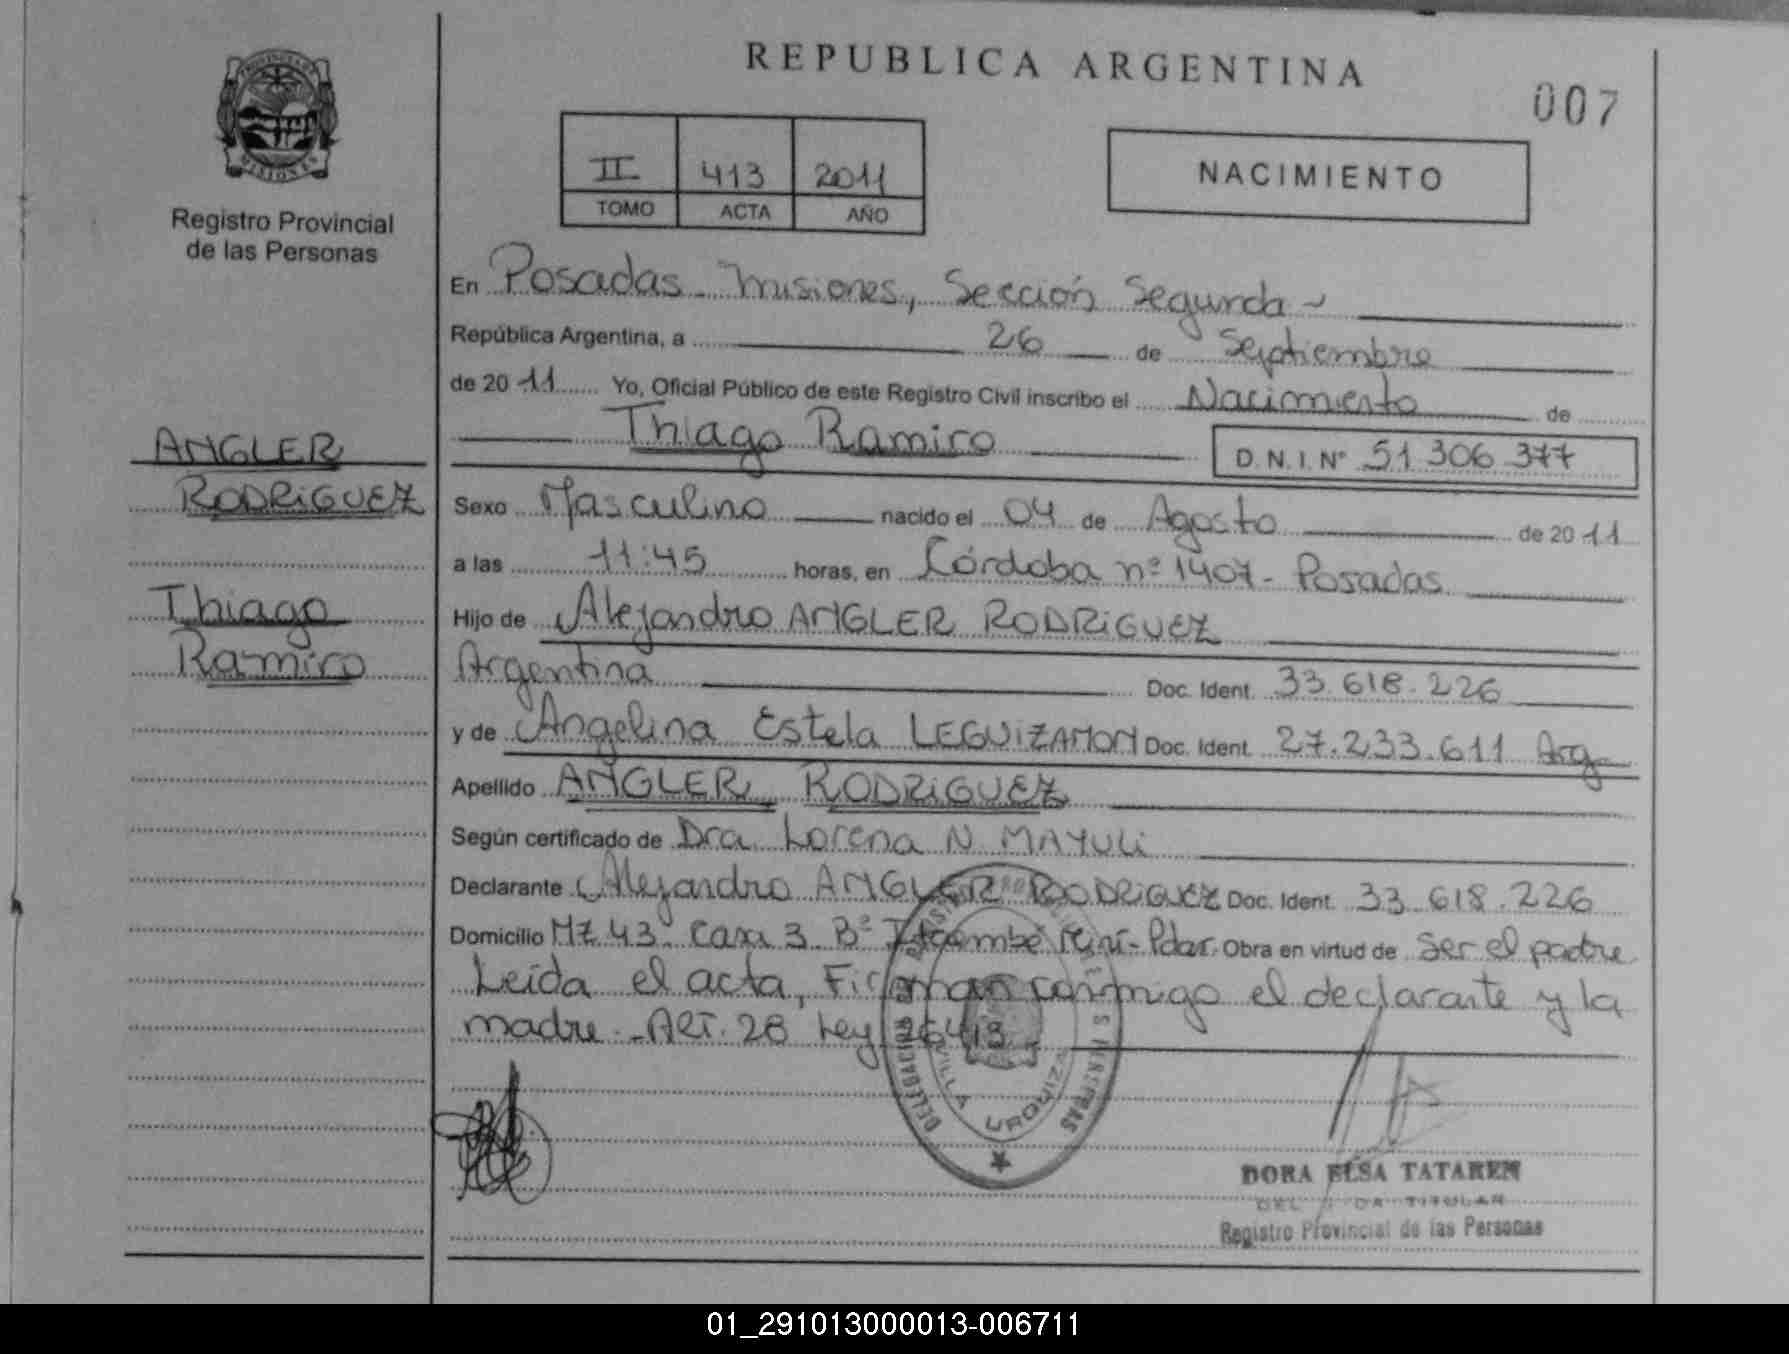 PROVINCIA DE
MISIONES
Registro Provincial
de las Personas
ANGLER
RODRIGUEZ
Thiago
Ramiro
REPUBLICA ARGENTINA
007
II 413 2011
TOMO ACTA AÑO
NACIMIENTO
En Posadas Misiones, Sección Segunda
República Argentina, a 26 de Septiembre
de 2011 Yo, Oficial Público de este Registro Civil inscribo el Nacimiento de
Thiago Ramiro D.N.I. Nº 51 306 377
Sexo Masculino nacido el 04 de Agosto de 2011
a las 11:45 horas, en Córdoba nº 1407 - Posadas
Hijo de Alejandro ANGLER RODRIGUEZ
Argentina Doc. Ident. 33.618.226
y de Angelina Estela LEGUIZAMON Doc. Ident. 27.233.611 Arg
Apellido ANGLER RODRIGUEZ
Según certificado de Dra. Lorena N. MAYULI
Declarante Alejandro ANGLER RODRIGUEZ Doc. Ident. 33.618.226
Domicilio MZ 43 Casa 3 Bº Itaembé Miní - Pdas. Obra en virtud de Ser el padre
Leída el acta, Firman conmigo el declarante y la
madre - ART. 28 Ley 26413
DELEGACION VILLA URQUIZA
DORA ELSA TATAREN
TITULAR
Registro Provincial de las Personas
01_291013000013-006711